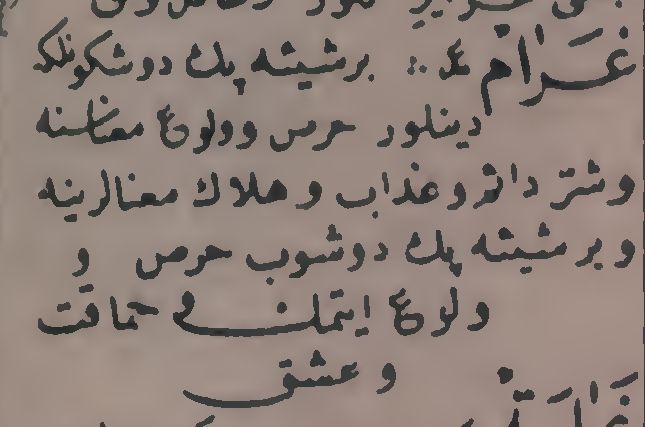 غَرَام ع :. برشیئه پك دوشكونلكه
دينلور حرص وولوع معناسنه
وشر دائم وعذاب وهلاك معنالرينه
وبر شيئه پك دوشوب حرص و
ولوع ايتمك حماقت
وعشق